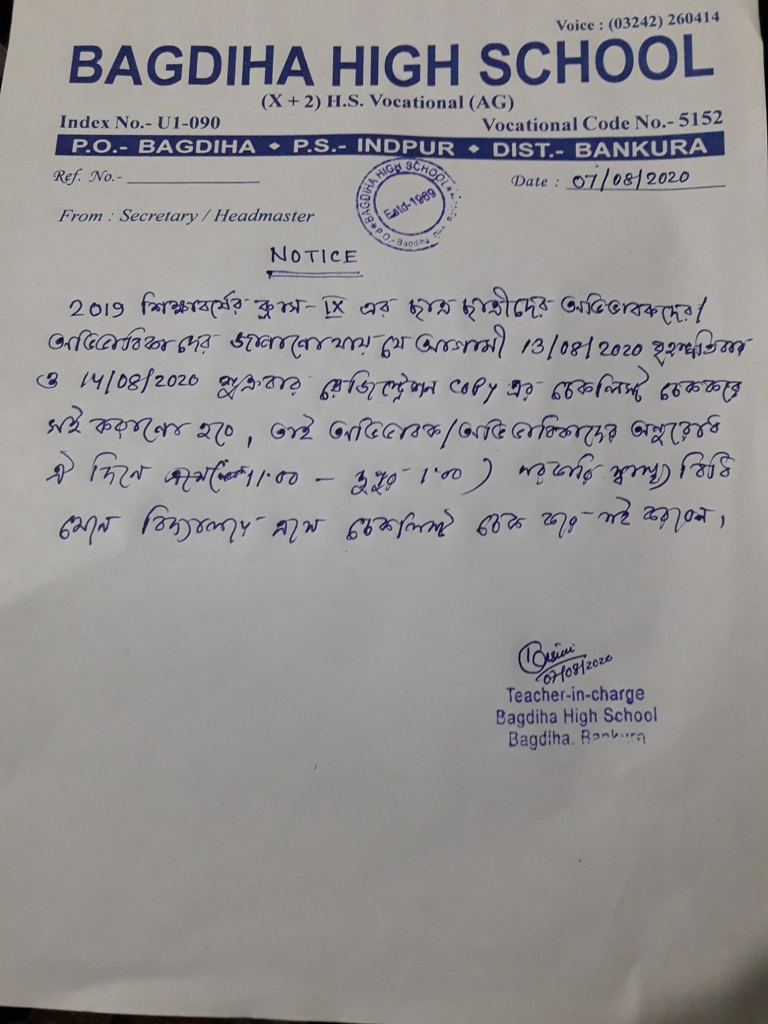 Voice : (03242) 260414
BAGDIHA HIGH SCHOOL
(X + 2) H.S. Vocational (AG)
Index No.- U1-090 Vocational Code No.- 5152
P.O.- BAGDIHA ◆ P.S.- INDPUR ◆ DIST.- BANKURA
Ref. No.- Date : 07/08/2020
BAGDIHA HIGH SCHOOL
Estd-1969
P.O.- Bagdiha
From : Secretary / Headmaster
NOTICE
2019 শিক্ষাবর্ষের ক্লাস- IX এর ছাত্র ছাত্রীদের অভিভাবকদের/
অভিভাবিকাদের জানানো যায় যে আগামী 13/08/2020 বৃহস্পতিবার
ও 14/08/2020 শুক্রবার রেজিস্ট্রেশন copy এর চেকলিস্ট চেক করে
সই করানো হবে, তাই অভিভাবক/অভিভাবিকাদের অনুরোধ
ঐ দিনে 11:00 – দুপুর 1:00) সরকারি স্বাস্থ্য বিধি
মেনে বিদ্যালয়ে এসে চেকলিস্ট চেক করে সই করবেন,
07/08/2020
Teacher-in-charge
Bagdiha High School
Bagdiha. Bankura